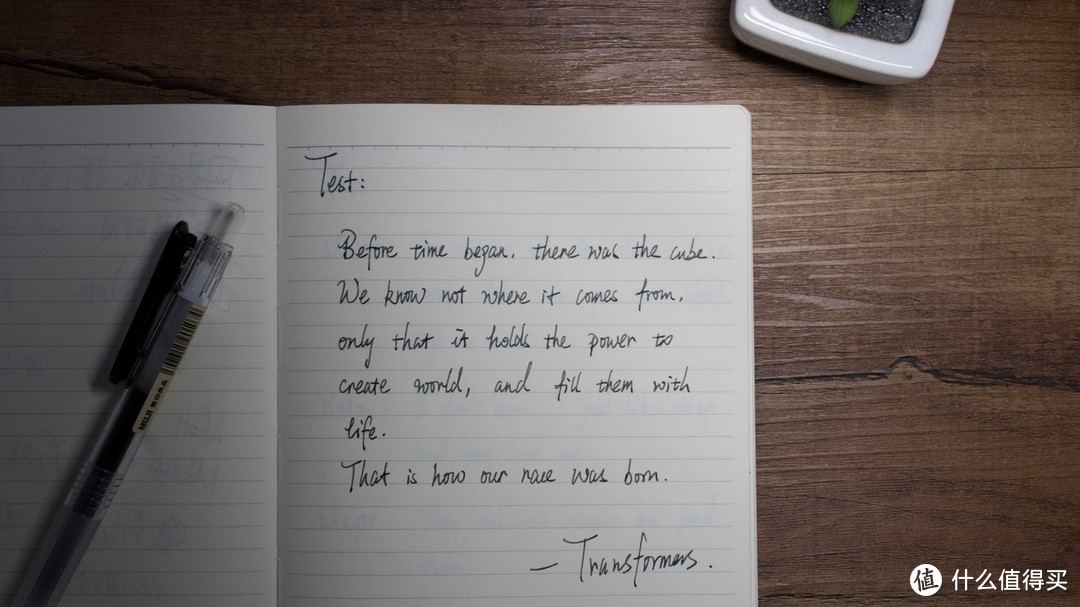 Test:
Before time began, there was the cube.
We know not where it comes from,
only that it holds the power to
create world, and fill them with
life.
That is how our race was born.
— Transformers.
MUJI 無印良品
值 什么值得买